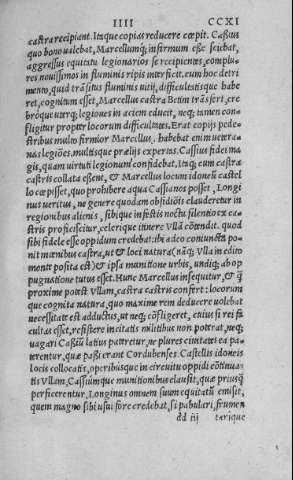 IIII CCXI
castra recipiant. Itaque copias reducere cœpit. Caßius
quo bono ualebat, Marcellumq; infirmum eße sciebat,
aggressus equitatu legionarios se recipientes, complu-
res nouissimos in fluminis ripis interficit. cum hoc detri
mento, quid trāsitus fluminis uitij, difficultatisque habe
ret, cognitum esset, Marcellus castra Betim trāsfert, cre
bróque uterq; legiones in aciem educit, neq; tamen con-
fligitur propter locorum difficultates. Erat copijs pede-
stribus multo firmior Marcellus, habebat enim uetera-
nas legiões, multisque prælijs expertas. Cassius fidei ma
gis, quàm uirtuti legionum confidebat. Itaq; cum castra
castris collata eßent, & Marcellus locum idoneū castel
lo cœpisset, quo prohibere aqua Caßianos posset, Longi
nus ueritus, ne genere quodam obsidiõis clauderetur in
regionibus alienis, sibique infestis noctu silentio ex ca-
stris proficiscitur, celerique itinere Vllā cõtendit. quod
sibi fidele esse oppidum credebat: ibi adeo coniuncta po-
nit mœnibus castra, ut & loci natura (nāq; Vlla in edito
monte posita est) & ipsa munitione urbis, undiq; ab op
pugnatione tutus esset. Hunc Marcellus insequitur, & q̄
proxime potest Vllam, castra castris confert: locorum
que cognita natura, quo maxime rem deducere uolebat
necessitate est adductus, ut neq; cõfligeret, cuius si rei fa
cultas esset, resistere incitatis militibus non poterat, neq;
uagari Caßiū latius pateretur, ne plures ciuitates ea pa-
terentur, quæ paßi erant Cordubenses. Castellis idoneis
locis collocatis, operibusque in circuitu oppidi cõtinua-
tis Vllam, Caßiumque munitionibus clausit, quæ priusq̄
perficerentur, Longinus omnem suum equitatū emisit,
quem magno sibi usui fore credebat, si pabulari, frumen
dd iij tarique